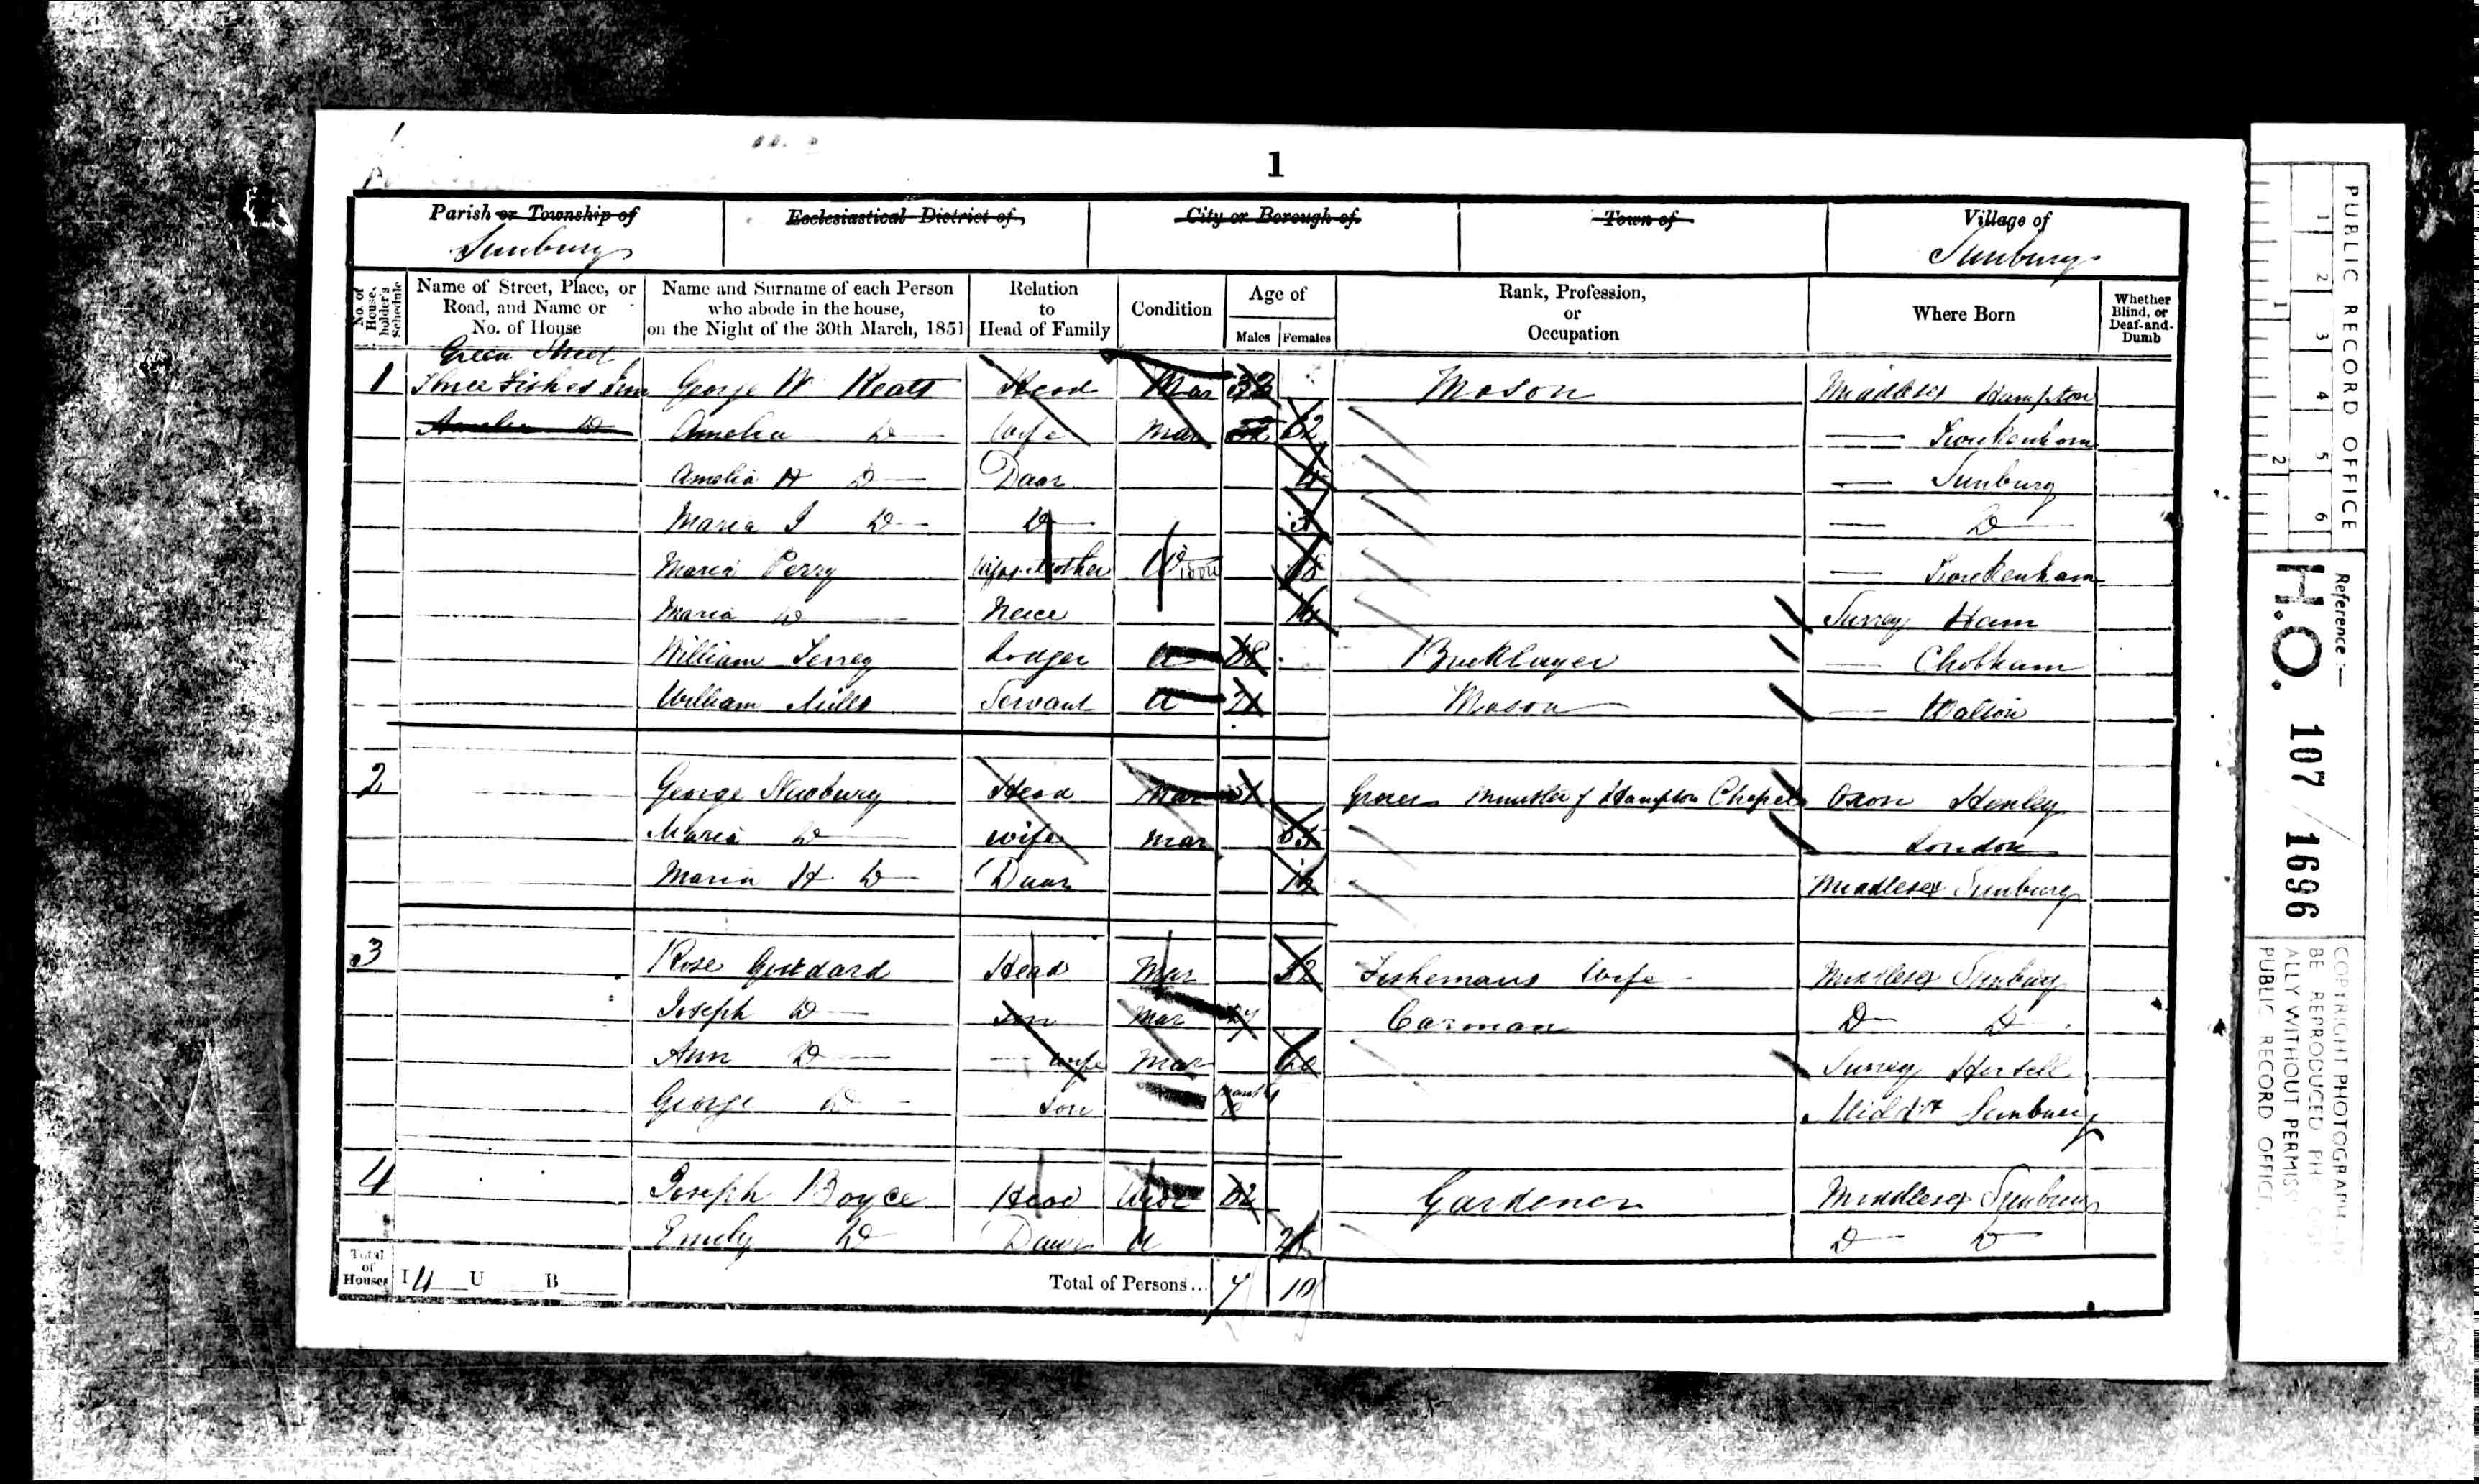 1
Parish or Township of
Sunbury
Ecclesiastical District of,
City or Borough of
Town of
Village of
Sunbury
No. of House-holder's Schedule
Name of Street, Place, or Road, and Name or No. of House
Name and Surname of each Person who abode in the house, on the Night of the 30th March, 1851
Relation to Head of Family
Condition
Age of
Males Females
Rank, Profession, or Occupation
Where Born
Whether Blind, or Deaf-and-Dumb
Green Street
1 Three Fishes Inn George W Keats Head Mar 32 Mason Middlesex Hampton
Amelia D Amelia D Wife Mar 32 Twickenham
Amelia H D Daur 4 Sunbury
Maria J D D 3 D
Maria Perry Wifes Mother Widow 68 Twickenham
Maria D Neice 14 Surrey Ham
William Lodger U 68 Bricklayer Chobham
William Mills Servant U Mason Walton
2 George Newbury Head Mar 51 Grocer Minister of Hampton Chapel Oxon Henley
Maria D wife Mar 55 London
Maria H D Daur Middlesex Sunbury
3 Rose Goddard Head Mar 52 Fishemans Wife Middlesex Sunbury
Joseph D Son Mar 27 Carman D D
Ann D wife Mar Surrey Horsell
George D Son Months Middx Sunbury
4 Joseph Boyce Head Widr 62 Gardener Middlesex Sunbury
Emily D Daur U D D
Total of Houses I 4 U B Total of Persons... 7 10
PUBLIC RECORD OFFICE
1 2 3 4 5 6
1 2
Reference:—
H.O. 107 / 1696
COPYRIGHT PHOTOGRAPH
BE REPRODUCED PH
ALLY WITHOUT PERMIS
PUBLIC RECORD OFFICE